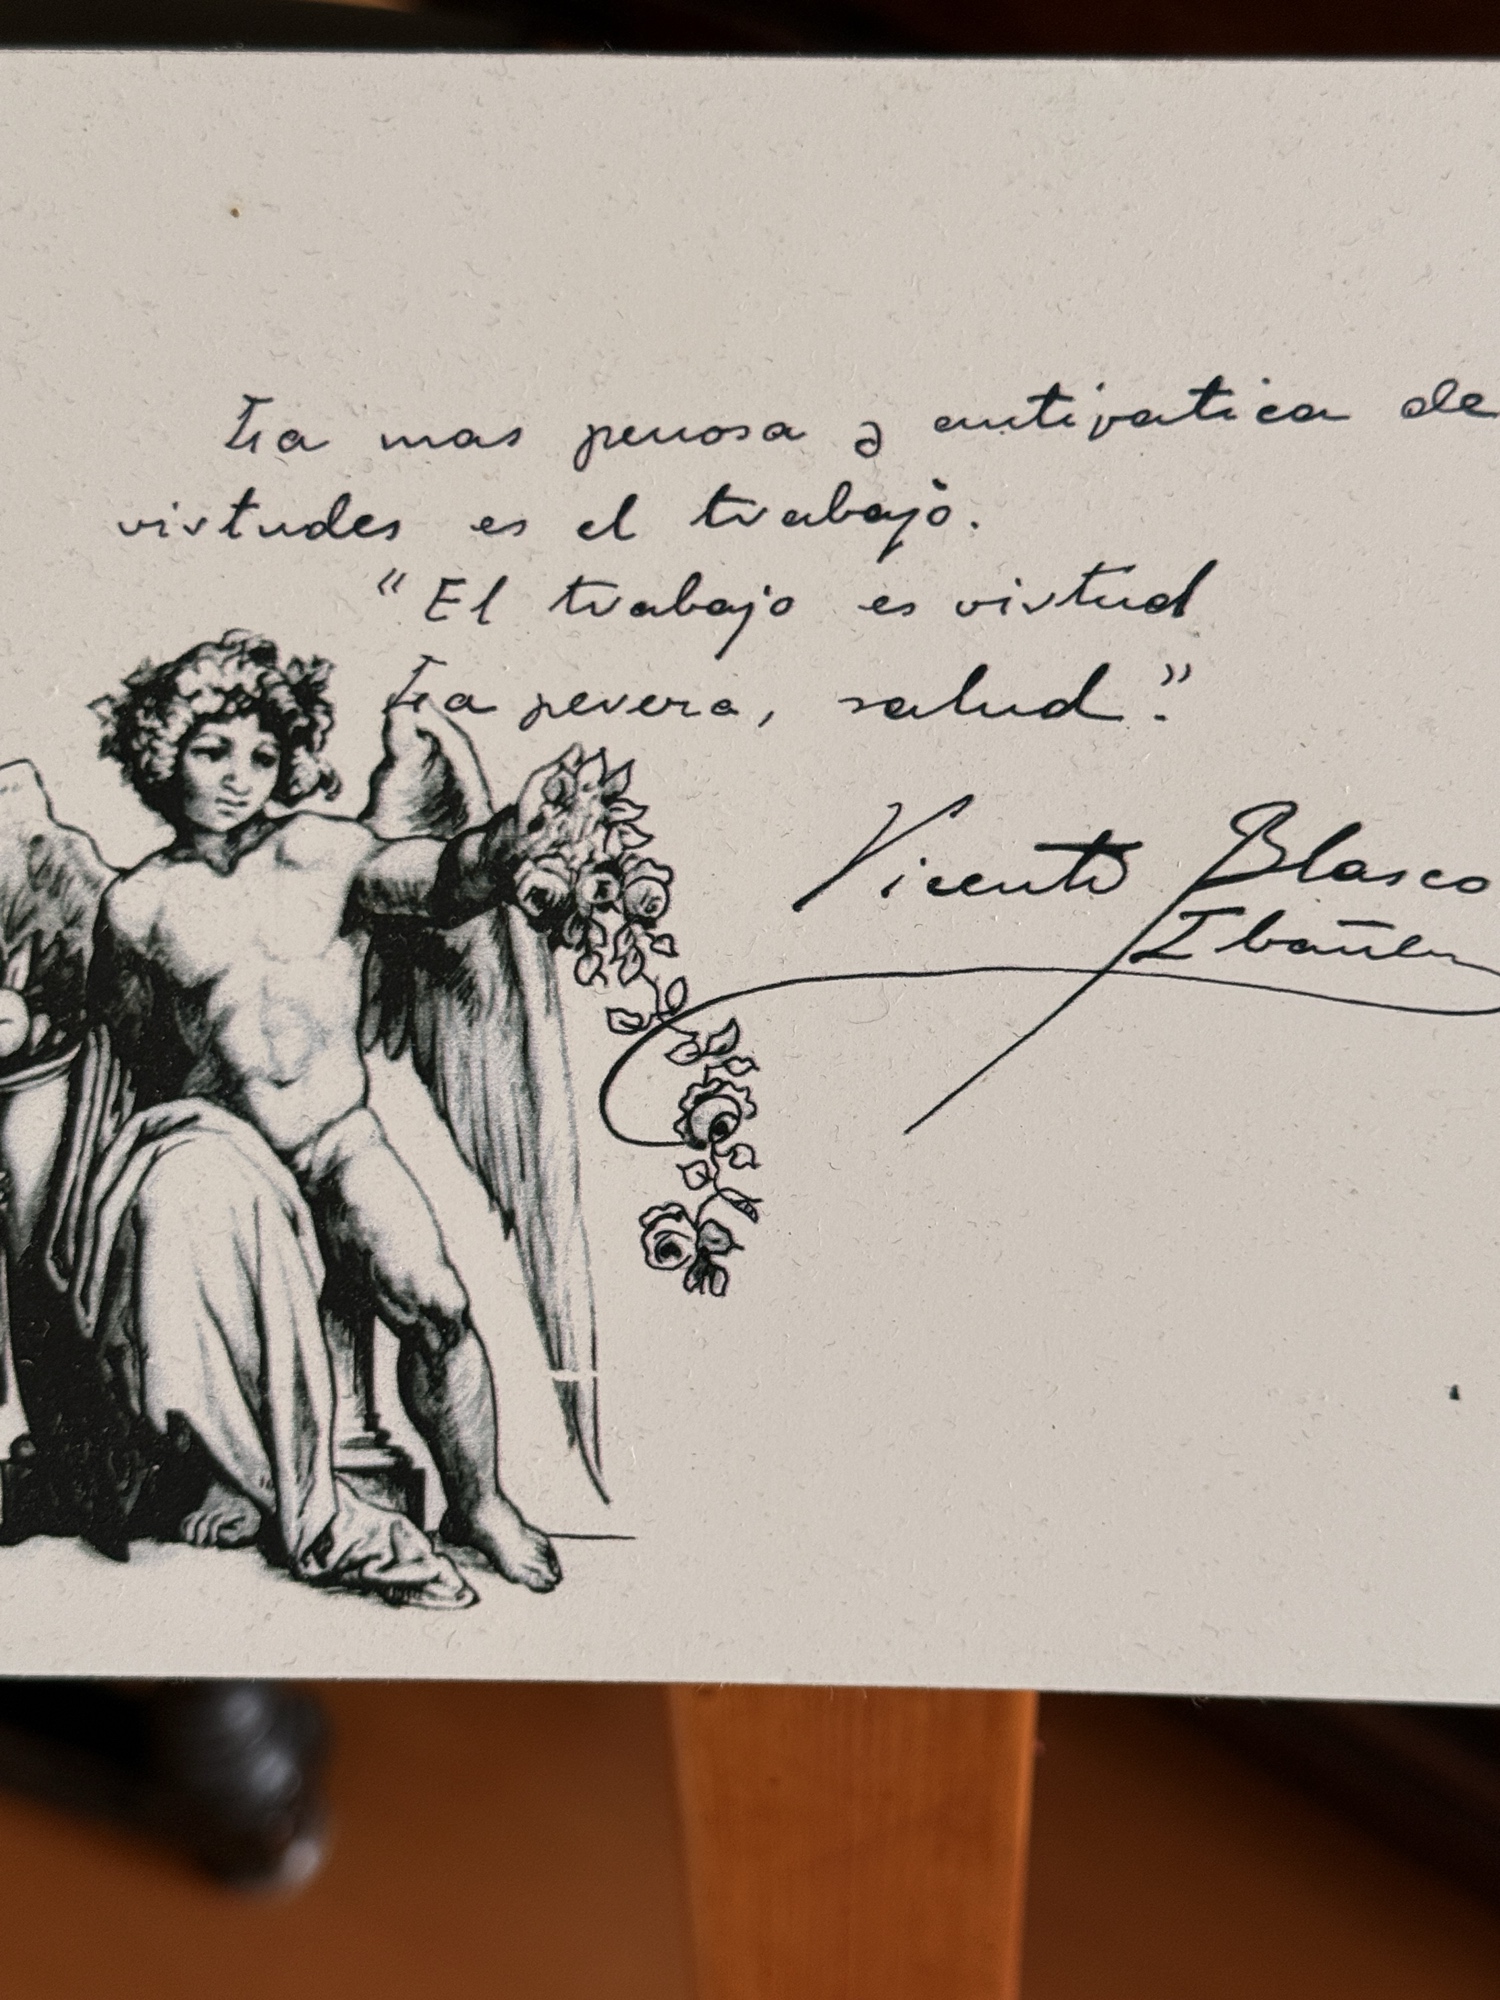 La mas penosa y antipatica de
virtudes es el trabajo.
"El trabajo es virtud
La pereza, salud."
Vicente Blasco
Ibañez